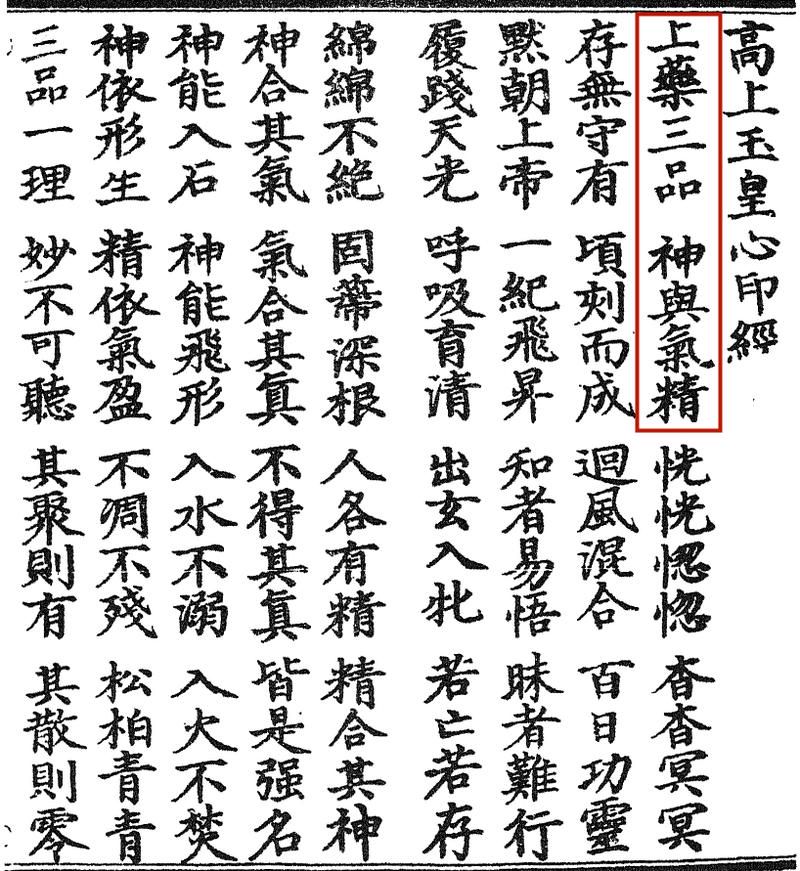 高上玉皇心印經
上藥三品 神與氣精 恍恍惚惚 杳杳冥冥
存無守有 頃刻而成 迴風混合 百日功靈
默朝上帝 一紀飛昇 知者易悟 昧者難行
履踐天光 呼吸育清 出玄入牝 若亡若存
綿綿不絕 固蔕深根 人各有精 精合其神
神合其氣 氣合其眞 不得其眞 皆是强名
神能入石 神能飛形 入水不溺 入火不焚
神依形生 精依氣盈 不凋不殘 松柏青青
三品一理 妙不可聽 其聚則有 其散則零